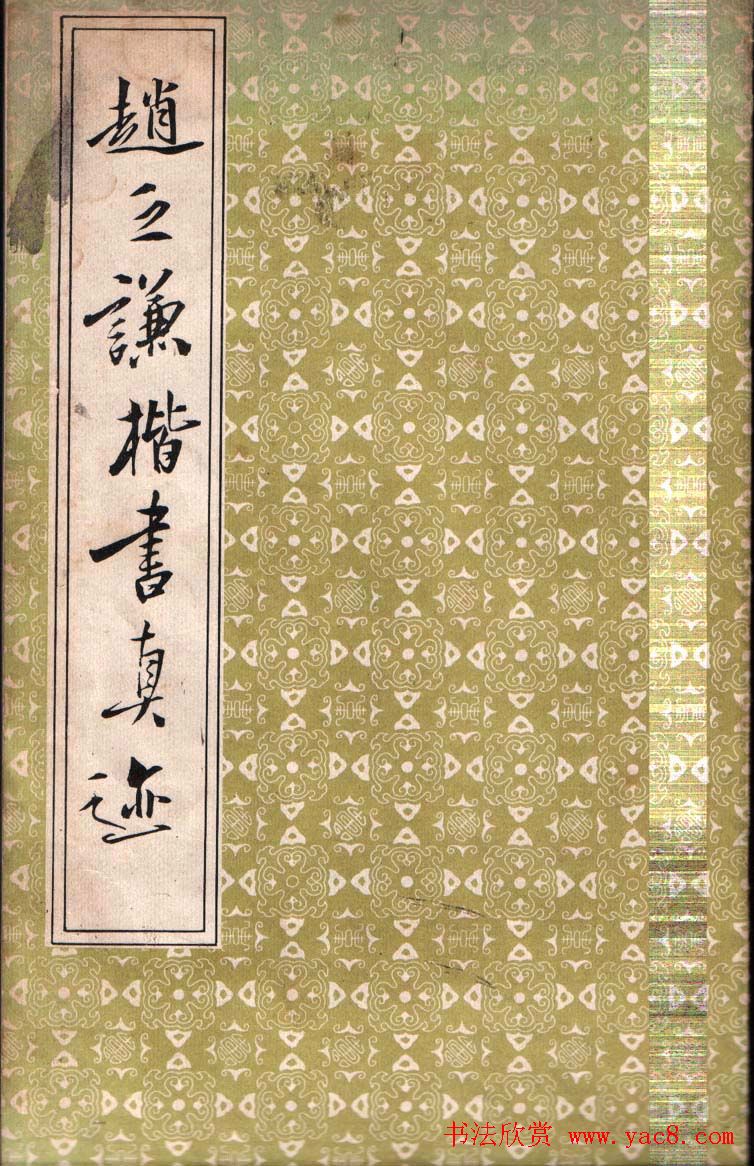 趙之謙楷書真迹
书法欣赏 www.yac8.com